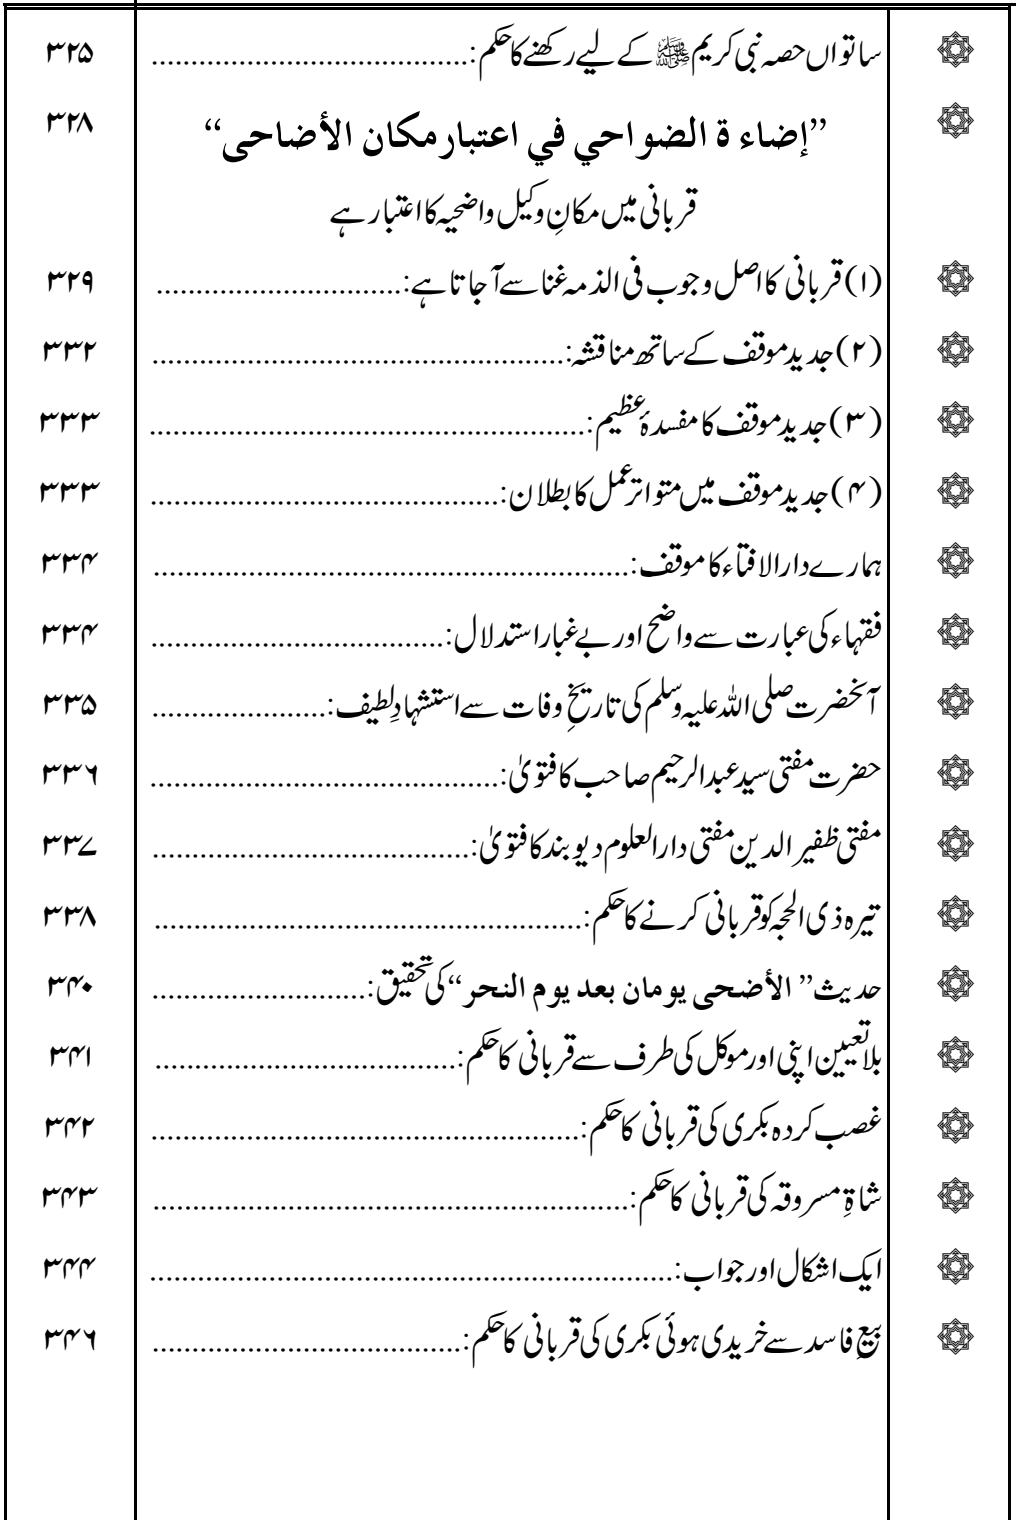 ساتواں حصہ نبی کریم ﷺ کے لیے رکھنے کا حکم:........................................ ۳۲۵
”إضاء ة الضواحي في اعتبار مكان الأضاحى“ ۳۲۸
قربانی میں مکانِ وکیل واضحیہ کا اعتبار ہے
(۱) قربانی کا اصل وجوب فی الذمہ غنا سے آجاتا ہے:............................... ۳۲۹
(۲) جدید موقف کے ساتھ مناقشہ:.................................................... ۳۳۲
(۳) جدید موقف کا مفسدۂ عظیم:....................................................... ۳۳۳
(۴) جدید موقف میں متواتر عمل کا بطلان:............................................ ۳۳۳
ہمارے دارالافتاء کا موقف:............................................................ ۳۳۴
فقہاء کی عبارت سے واضح اور بے غبار استدلال:..................................... ۳۳۴
آنحضرت صلی اللہ علیہ وسلم کی تاریخِ وفات سے استشہادِ لطیف:...................... ۳۳۵
حضرت مفتی سید عبدالرحیم صاحب کا فتویٰ:............................................ ۳۳۶
مفتی ظفیر الدین مفتی دارالعلوم دیوبند کا فتویٰ:........................................ ۳۳۷
تیرہ ذی الحجہ کو قربانی کرنے کا حکم:...................................................... ۳۳۸
حدیث ” الأضحى يومان بعد يوم النحر“ کی تحقیق:........................... ۳۴۰
بلا تعیین اپنی اور موکل کی طرف سے قربانی کا حکم:...................................... ۳۴۱
غصب کردہ بکری کی قربانی کا حکم:...................................................... ۳۴۲
شاۃِ مسروقہ کی قربانی کا حکم:............................................................ ۳۴۳
ایک اشکال اور جواب:.................................................................. ۳۴۴
بیعِ فاسد سے خریدی ہوئی بکری کی قربانی کا حکم:....................................... ۳۴۶